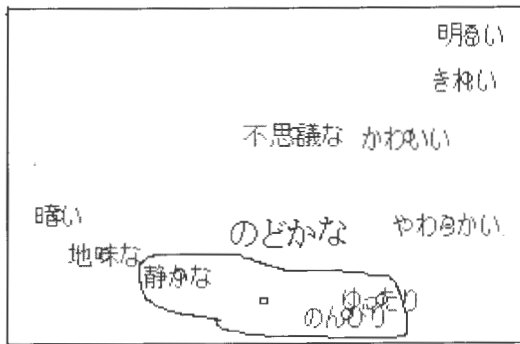 明るい
きれい
不思議な かわいい
暗い
のどかな やわらかい
地味な
静かな
ゆったり
のんびり